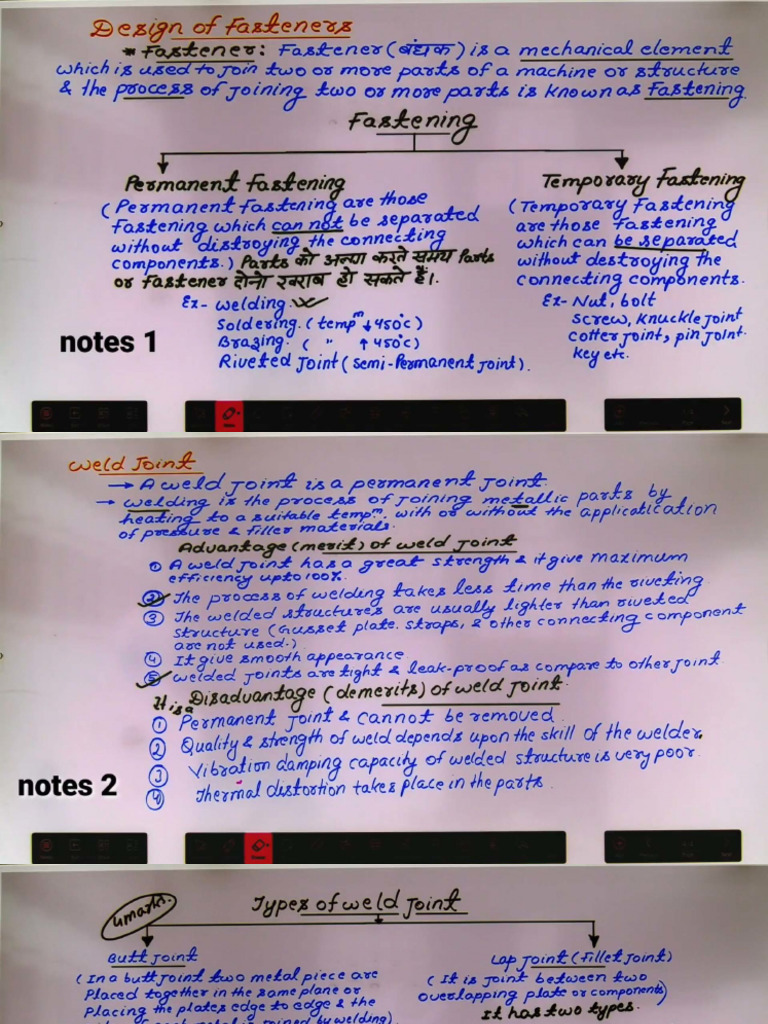 Design of Fasteners
* Fastener: Fastener (बंधक) is a mechanical element
which is used to join two or more parts of a machine or structure
& the process of joining two or more parts is known as Fastening.
Fastening
Permanent Fastening
(Permanent Fastening are those
Fastening which can not be separated
without distroying the connecting
components.) Parts को अन्या करते समय Parts
or Fastener दोनो खराब हो सकते हैं।.
Ex- welding.
Soldering. (tempᵐ ↓ 450°c)
Brazing. ( " ↑ 450°c)
Riveted Joint (semi-Permanent joint).
Temporary Fastening
(Temporary Fastening
are those Fastening
which can be separated
without destroying the
connecting components.
Ex- Nut, bolt
screw, knuckle joint
cotter joint, pin joint.
key etc.
notes 1
Weld Joint
→ A weld joint is a permanent joint.
→ welding is the process of joining metallic parts by
heating to a suitable tempᵐ. with or without the applicatication
of pressure & filler materials.
Advantage (merit) of weld joint
① A weld joint has a great strength & it give maximum
efficiency upto 100%.
② The process of welding takes less time than the riveting
③ The welded structures are usually lighter than riveted
structure (Gusset plate. straps, & other connecting component
are not used.)
④ It give smooth appearance
⑤ welded joints are tight & leak-proof as compare to other joint.
It is a
Disadvantage (demerits) of weld joint.
① Permanent joint & cannot be removed.
② Quality & strength of weld depends upon the skill of the welder.
③ Vibration damping capacity of welded structure is very poor.
④ Thermal distortion takes place in the parts.
notes 2
4marks.
Types of weld joint
Butt joint
(In a butt joint two metal piece are
placed together in the same plane or
placing the plates edge to edge & the
metal is joined by welding)
Lap joint (fillet joint)
(It is joint between two
overlapping plate or components)
It has two types.